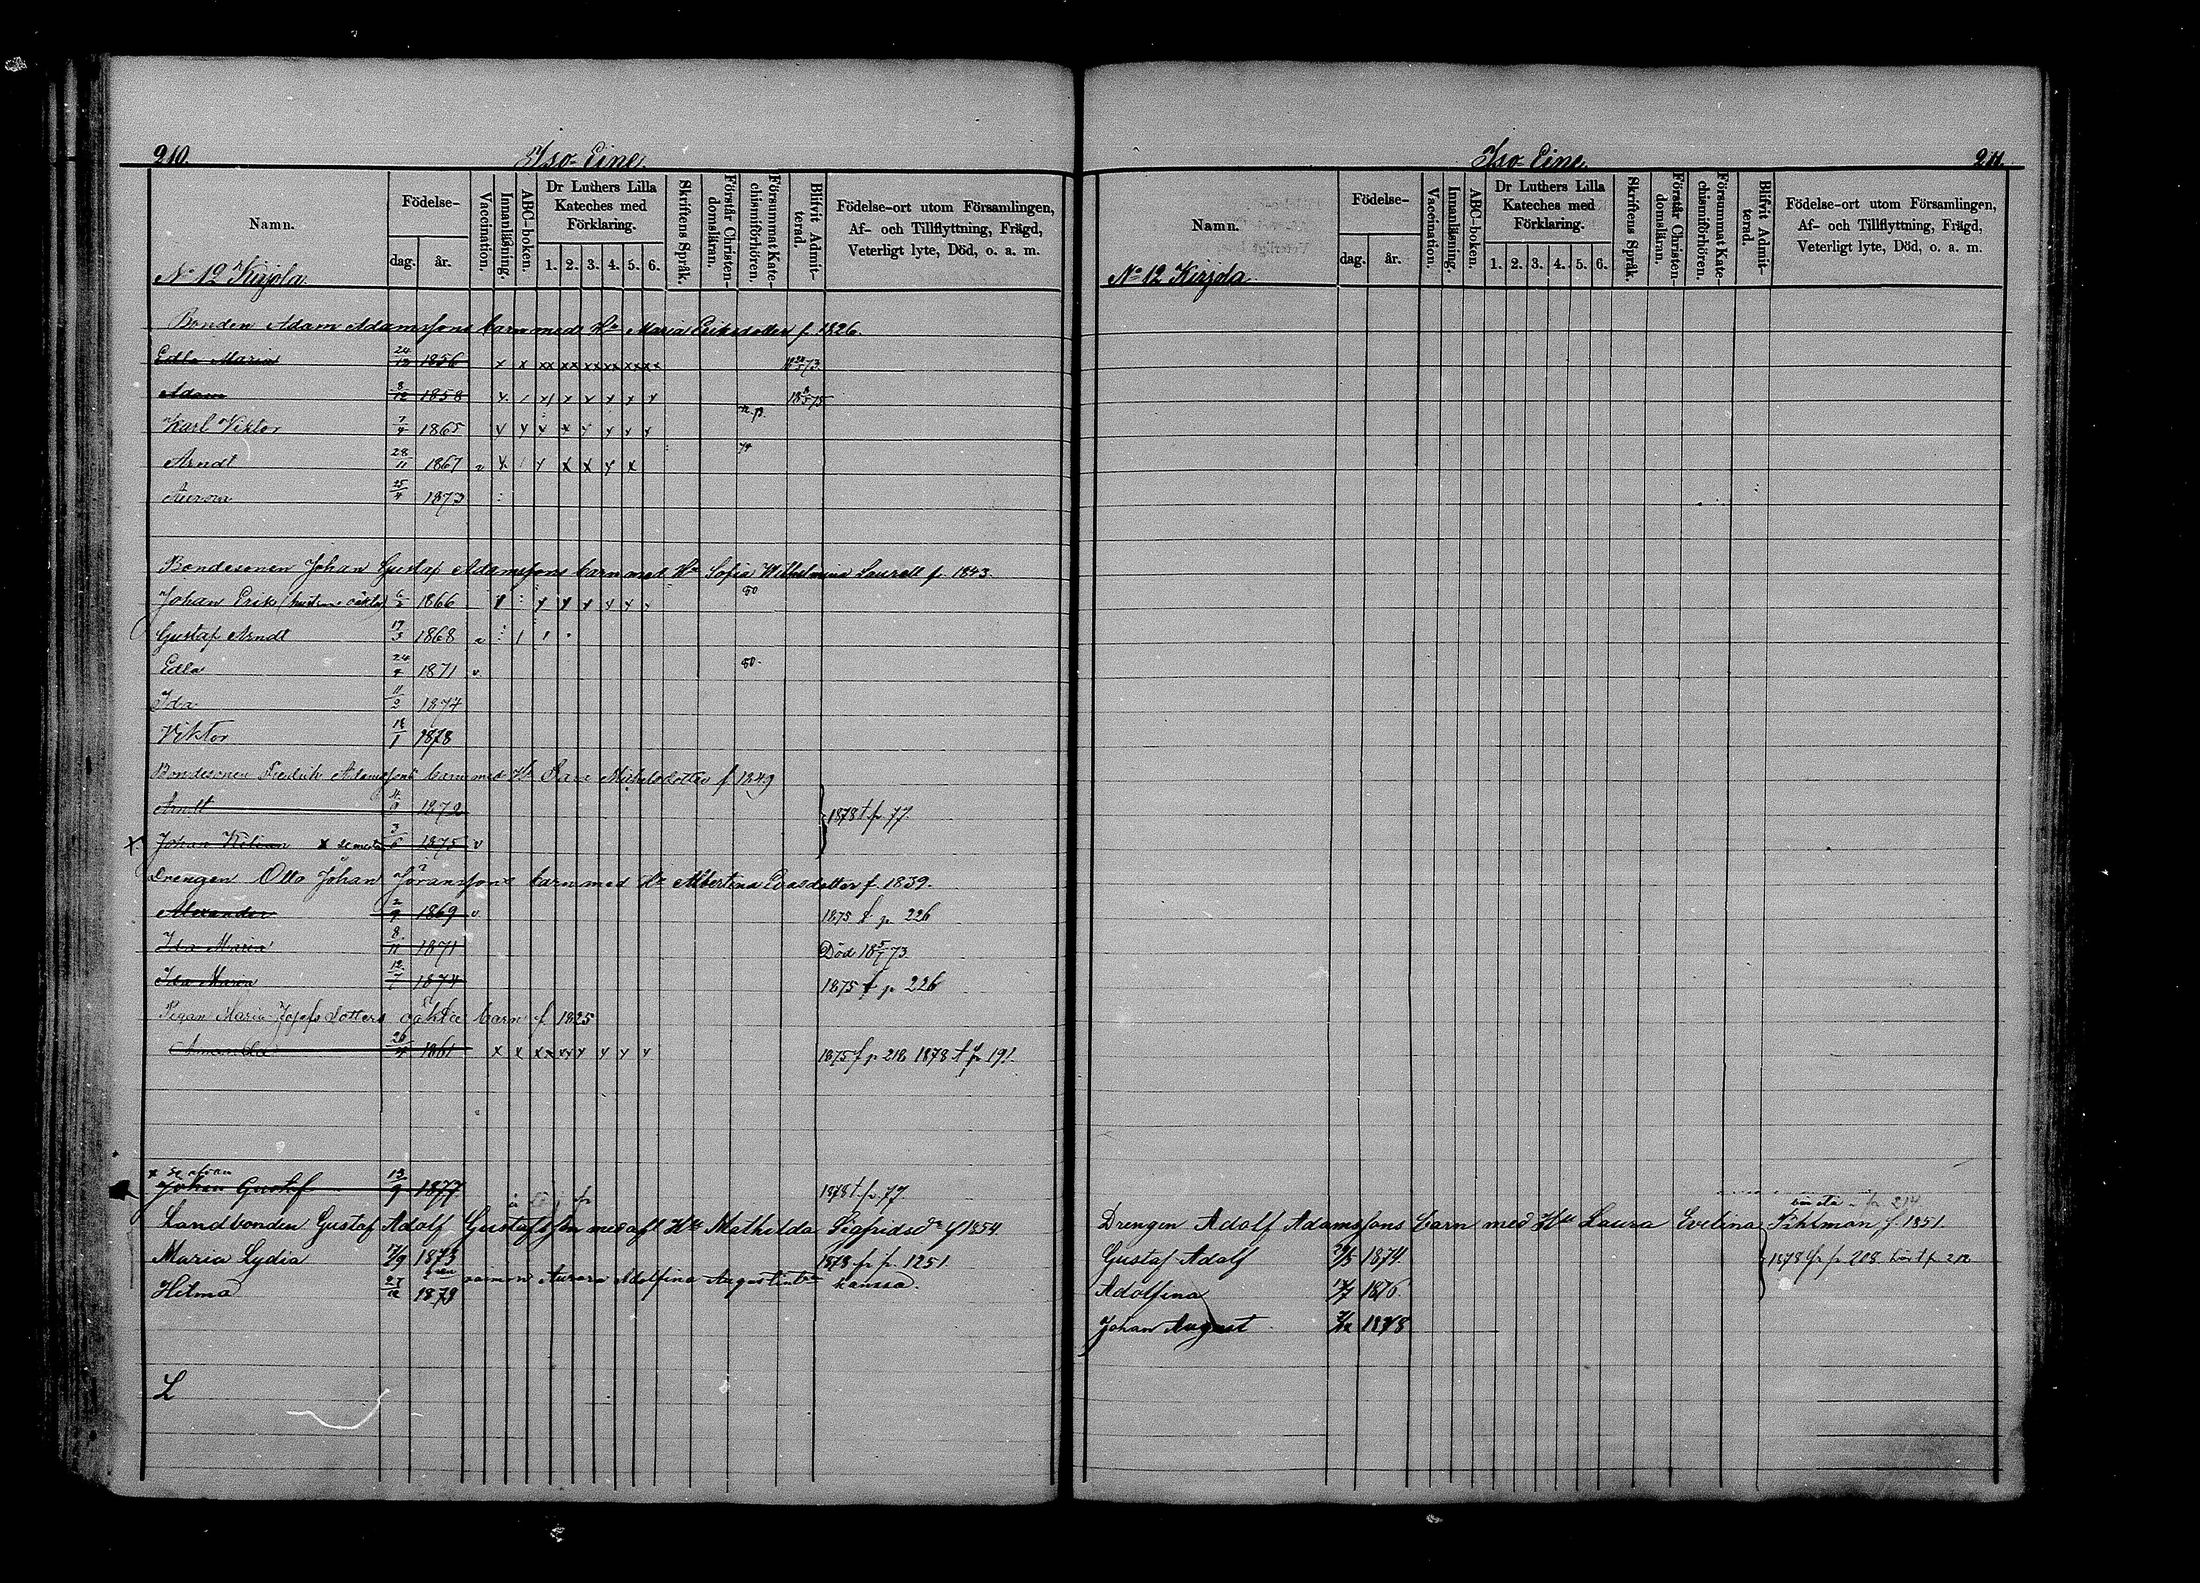 210.
Iso-Eine.
Namn.
Födelse-
dag.
år.
Vaccination.
Innanläsning.
ABC-boken.
Dr Luthers Lilla Kateches med Förklaring.
1. 2. 3. 4. 5. 6.
Skriftens Språk.
Förstår Christen-domsläran.
Försummat Kate-chismiförhören.
Blifvit Admit-terad.
Födelse-ort utom Församlingen,
Af- och Tillflyttning, Frägd,
Veterligt lyte, Död, o. a. m.
No 12 Kirjola
Bonden Adam Adamssons barn med Ho Maria Eriksdotter f. 1826.
Edla Maria 24/12 1856 x x xx xx xx xx xx xx
Adam 8/12 1858
Karl Viktor 7/4 1865
Arndt 28/11 1867
Aurora 25/4 1873
Bondesonen Johan Gustaf Adamssons barn med Ho Sofia Wilhelmina Laurell f. 1843.
Johan Erik 6/2 1866 80
Gustaf Arndt 17/3 1868
Edla 24/2 1871 v 80.
Ida 11/2 1874
Viktor 18/1 1878
Bondesonen Fredrik Adamssons barn med Ho Sara Michelsdotter f 1849
Arndt 4/9 1872 1878 t. p 77.
x Johan Kilian x se nedan 3/6 1875 v
Drengen Otto Johan Göranssons barn med Ho Albertina Evasdotter f. 1839.
Alexander 2/9 1869 v 1875 f p 226
Ida Maria 8/11 1871 Död 18 5/7 73.
Ida Maria 12/7 1874 1875 f p 226
Pigan Maria Josefsdotters oäkta barn f 1825
Amanda 26/4 1861 x x xx xx x x x x 1875 f p 218 1878 t p 191.
x se ofvan
Johan Gustaf 13/9 1877 1878 t. p 77.
Landbonden Gustaf Adolf Gustafsson med aft Hu Mathilda Sigfridsdr f 1854.
Maria Lydia 17/9 1873 1878 fr p. 1251.
Hilma 27/12 1879 vaimon Aurora Adolfina Augustintr kanssa.
L
Iso-Eine.
211.
Namn.
Födelse-
dag.
år.
Vaccination.
Innanläsning.
ABC-boken.
Dr Luthers Lilla Kateches med Förklaring.
1. 2. 3. 4. 5. 6.
Skriftens Språk.
Förstår Christen-domsläran.
Försummat Kate-chismiförhören.
Blifvit Admit-terad.
Födelse-ort utom Församlingen,
Af- och Tillflyttning, Frägd,
Veterligt lyte, Död, o. a. m.
No 12 Kirjola
Drengen Adolf Adamssons barn med Hu Laura Evelina Pihlman f. 1851.
Gustaf Adolf 1874. 1878 fr p 208
Adolfina 1876.
Johan August 1878